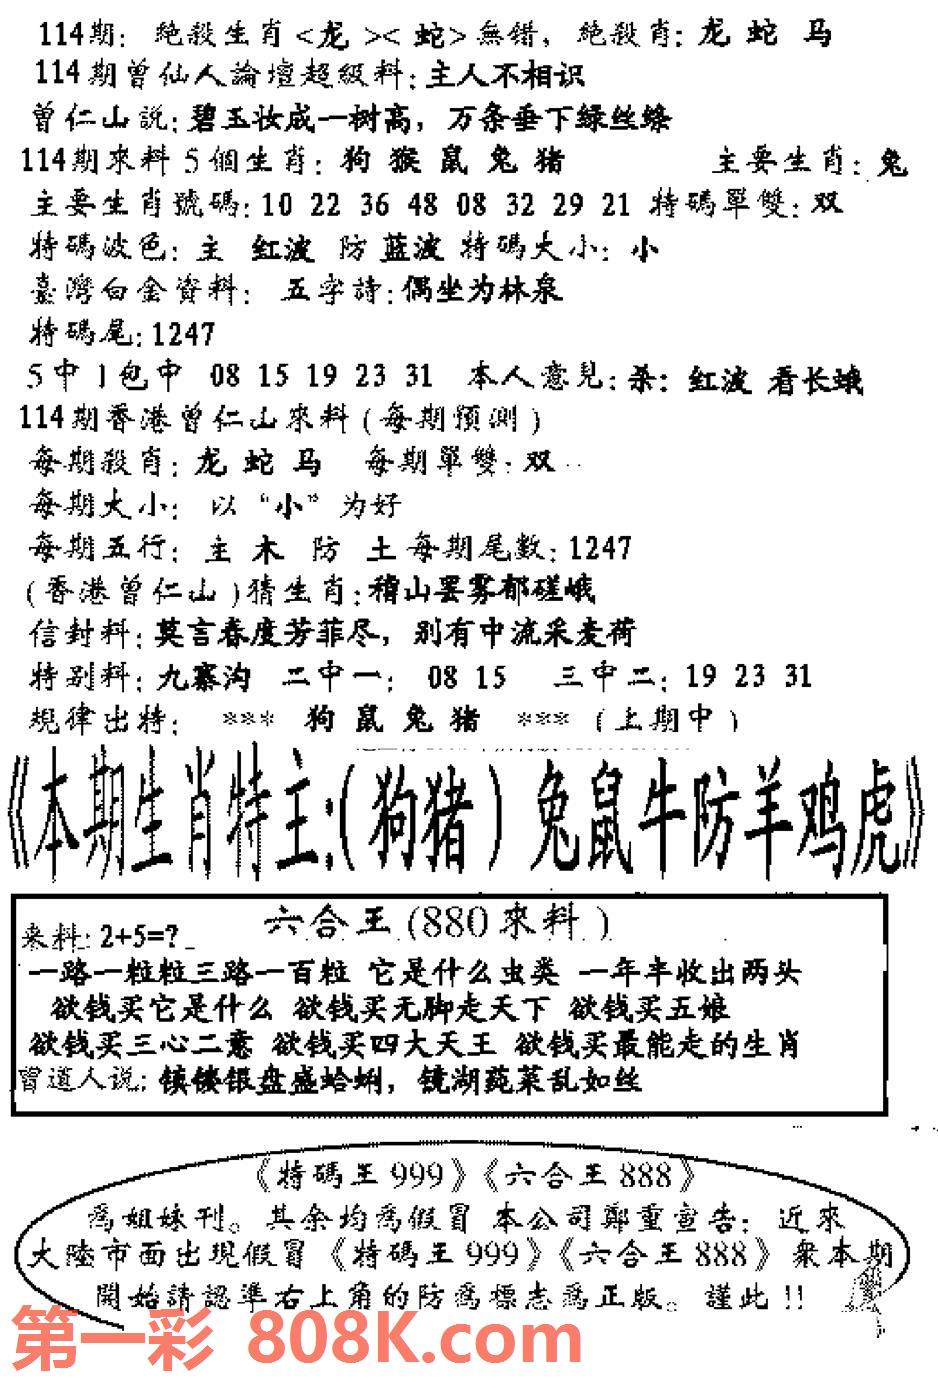 114期: 絶殺生肖<龙><蛇>無錯, 絶殺肖: 龙 蛇 马
114期曾仙人論壇超級料: 主人不相识
曾仁山説: 碧玉妆成一树高, 万条垂下绿丝绦
114期來料 5 個生肖: 狗 猴 鼠 兔 猪 主要生肖: 兔
主要生肖號碼: 10 22 36 48 08 32 29 21 特碼單雙: 双
特碼波色: 主 红波 防 蓝波 特碼大小: 小
臺灣白金資料: 五字詩: 偶坐为林泉
特碼尾: 1247
5 中 1 包中 08 15 19 23 31 本人意見: 杀: 红波 看长蛾
114期香港曾仁山來料 (每期預測)
每期殺肖: 龙 蛇 马 每期單雙: 双
每期大小: 以 “小” 为好
每期五行: 主 木 防 土 每期尾数: 1247
(香港曾仁山) 猜生肖: 稽山罢雾郁嵯峨
信封料: 莫言春度芳菲尽, 别有中流采芰荷
特别料: 九寨沟 二中一: 08 15 三中二: 19 23 31
規律出特: *** 狗 鼠 兔 猪 *** (上期中)
《本期生肖特主:(狗猪) 兔鼠牛防羊鸡虎》
六合王(880來料)
来料: 2+5=?
一路一粒粒三路一百粒 它是什么虫类 一年丰收出两头
欲钱买它是什么 欲钱买无脚走天下 欲钱买五娘
欲钱买三心二意 欲钱买四大天王 欲钱买最能走的生肖
曾道人说: 镇楼银盘盛蛤蜊, 镜湖莼菜乱如丝
《特碼王 999》《六合王 888》
為姐妹刊。其余均為假冒 本公司鄭重宣告: 近來
大陸市面出現假冒《特碼王 999》《六合王 888》衆本期
開始請認準右上角的防為標志為正版。謹此 !!
第一彩 808K.com